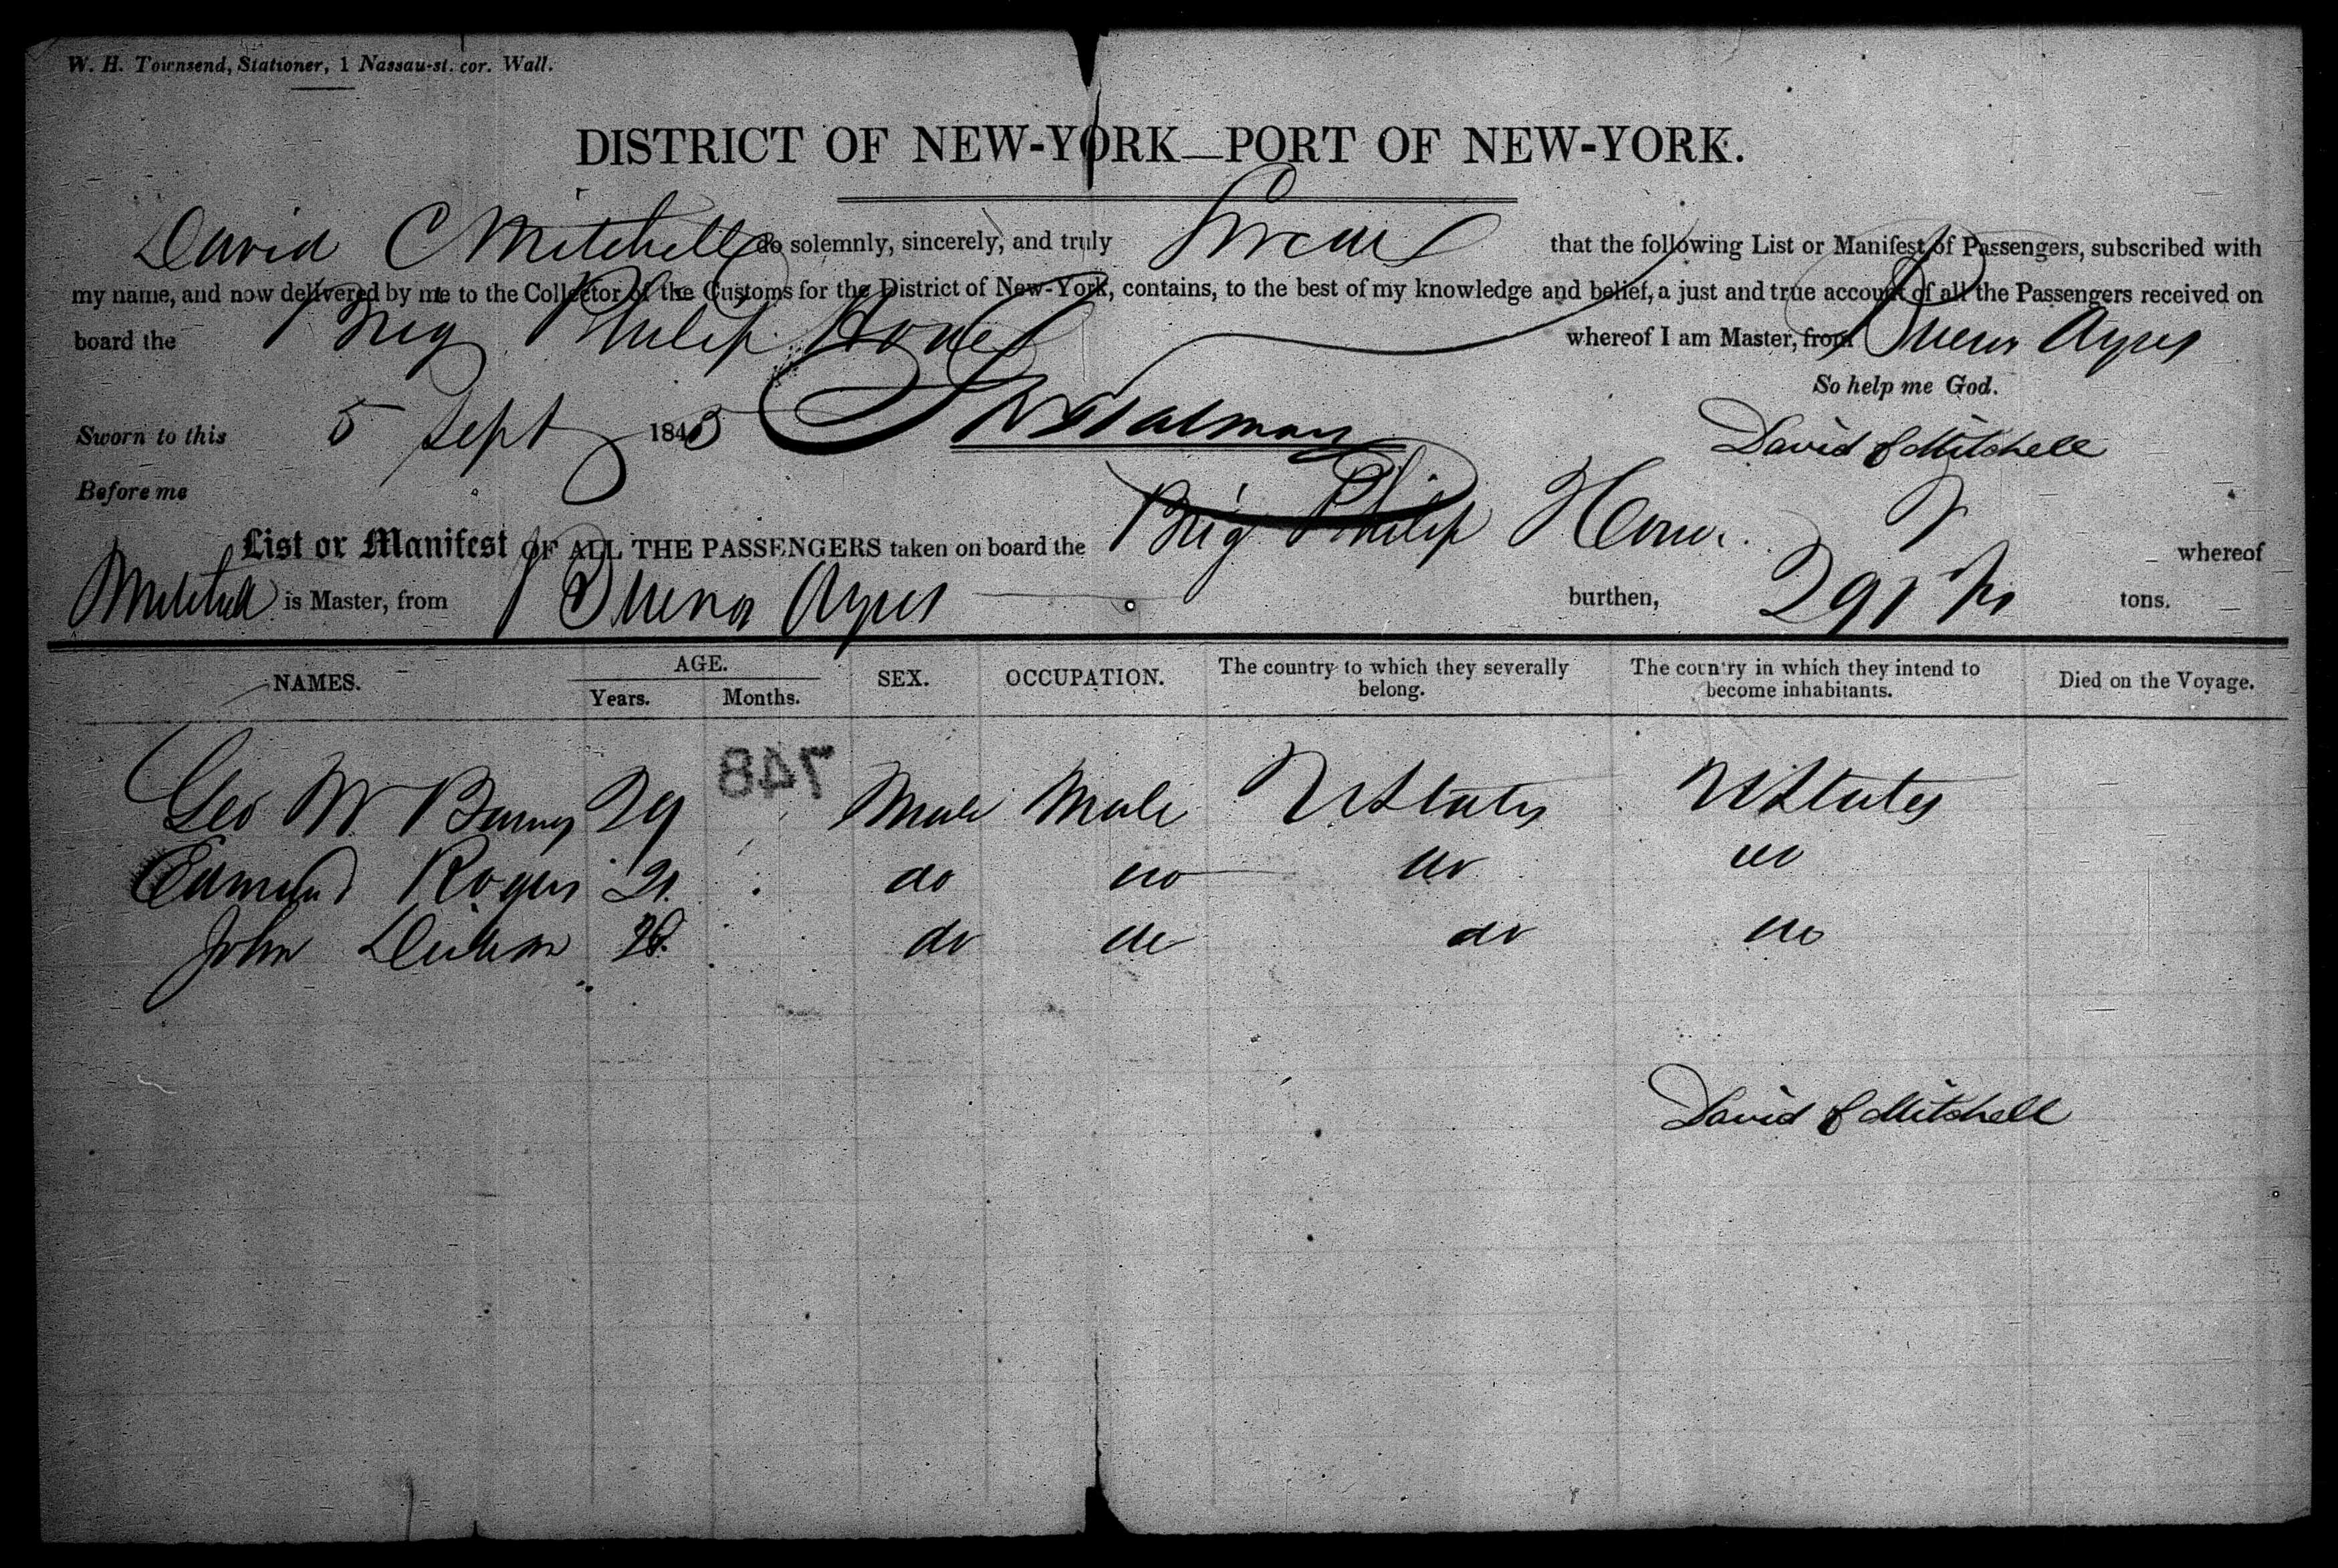 W. H. Townsend, Stationer, 1 Nassau-st. cor. Wall.
DISTRICT OF NEW-YORK—PORT OF NEW-YORK.
David C Mitchell do solemnly, sincerely, and truly Swear that the following List or Manifest of Passengers, subscribed with
my name, and now delivered by me to the Collector of the Customs for the District of New-York, contains, to the best of my knowledge and belief, a just and true account of all the Passengers received on
board the Brig Philip Hone whereof I am Master, from Buenos Ayres
So help me God.
Sworn to this 5 Sept 1845 David C Mitchell
Before me
List or Manifest OF ALL THE PASSENGERS taken on board the Brig Philip Hone whereof
Mitchell is Master, from Buenos Ayres burthen, 291 tons.
NAMES. AGE. SEX. OCCUPATION. The country to which they severally belong. The country in which they intend to become inhabitants. Died on the Voyage.
Years. Months.
748
Geo W 29 Male Male U States U States
Edmund Rogers 21 do do do do
John do do do do
David C Mitchell